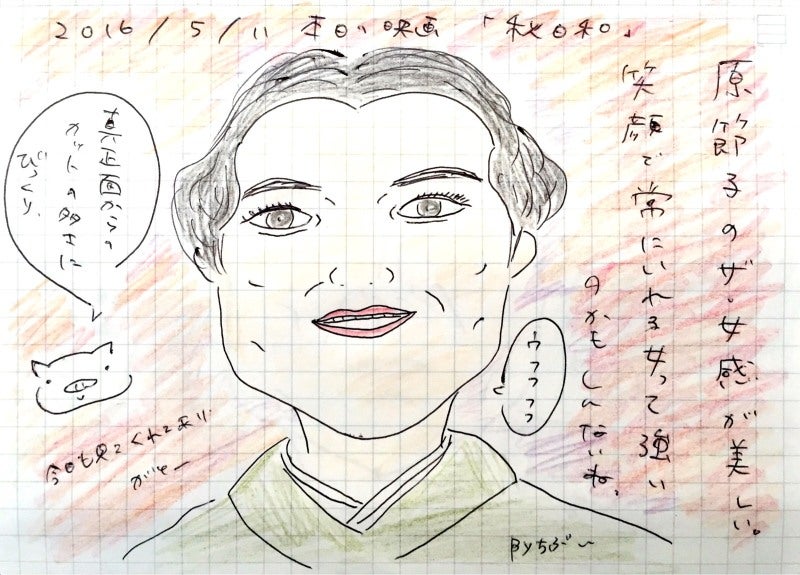 2016/5/11 本日の映画 「秋日和」
原節子のザ・女感が美しい。
笑顔で常にいれる女って強い
のかもしんないね。
真正面からの
カットの多さに
びっくり。
ウフフフフ
今日も見てくれてあり
がとー
Byちぶ〜